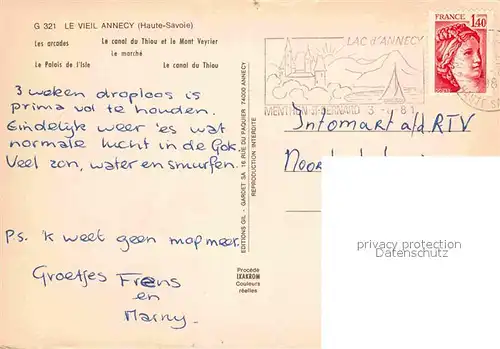 G 321 LE VIEIL ANNECY (Haute-Savoie)
Les arcades Le canal du Thiou et le Mont Veyrier
Le marché
Le Palais de l'Isle Le canal du Thiou
3 weken droploos is
prima vol te houden.
Eindelijk weer 'es wat
normale lucht in de Gok.
Veel zon, water en smurfen.
P.s. 'k weet geen mop meer.
Groetjes Frens
en
Marny.
EDITIONS GIL - GARDET SA 16 RUE DU PAQUIER 74000 ANNECY
REPRODUCTION INTERDITE
Procédé
IXAKROM
Couleurs
réelles
LAC d'ANNECY
MENTHON-ST-BERNARD 3 81
FRANCE
1,40
Intomart afd. RTV
privacy protection
Veikkos-archiv